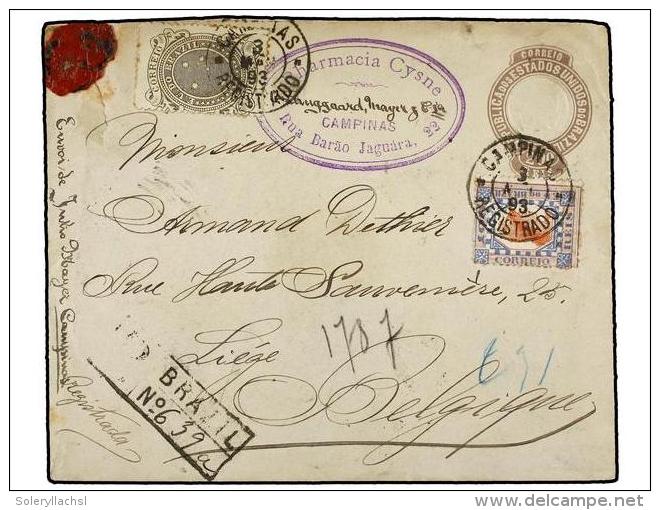 CORREIO
BRAZIL
CAMPINAS
3
93
REGISTRADO
Pharmacia Cysne
Langgaard, Mayer & Cia
CAMPINAS
Rua Barão Jaguára, 22
CORREIO
REPUBLICA DOS ESTADOS UNIDOS DO BRAZIL
CAMPINAS
3
93
REGISTRADO
CORREIO
Monsieur
Armand Dethier
Rue Haute Sauvenière, 25.
Liége
Belgique
1787
691
BRAZIL
No 639a
Envoi de Julio Mayer Campinas
Registrada
Soleryllachsl
delcampe.net